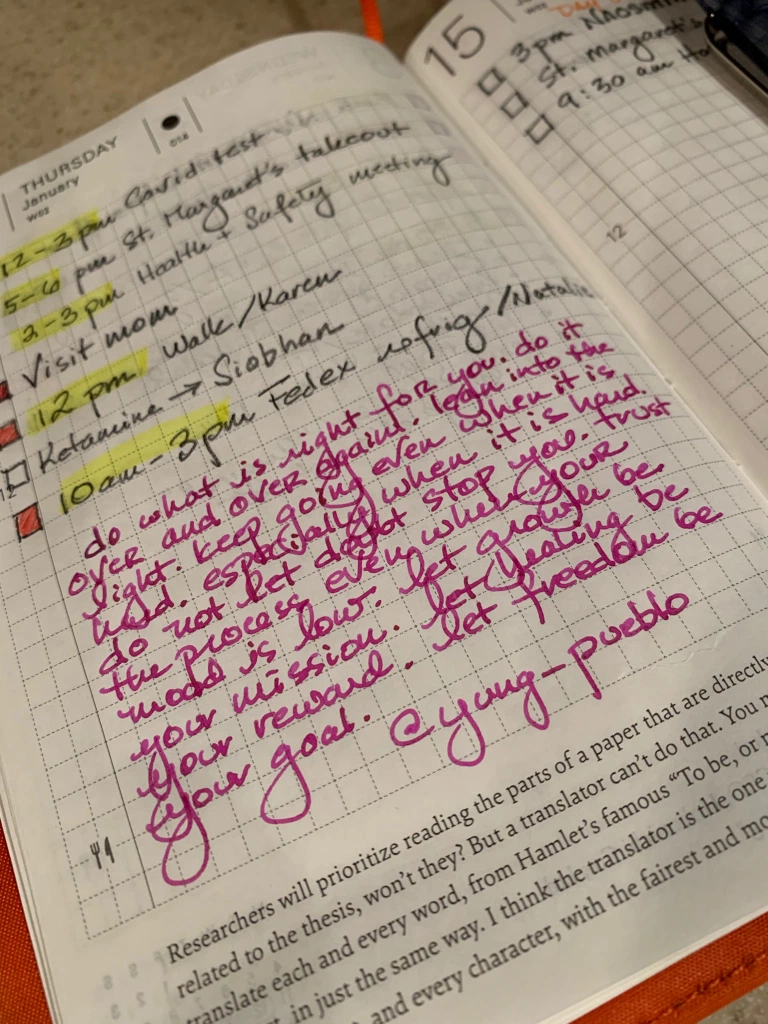 THURSDAY
January
W02
014
12-3pm Covid test
5-6 pm St. Margaret's takeout
2-3pm Health + Safety meeting
Visit mom
12 pm Walk/Karen
Ketamine → Siobhan
10am-3pm Fedex refrig/Natalie
do what is right for you. do it
over and over again. lean into the
light. keep going even when it is
hard. especially when it is hard.
do not let doubt stop you. trust
the process even when your
mood is low. let growth be
your mission. let healing be
your reward. let freedom be
your goal. @yung-pueblo
Researchers will prioritize reading the parts of a paper that are directly
related to the thesis, won't they? But a translator can't do that. You
translate each and every word, from Hamlet's famous "To be, or
in just the same way. I think the translator is the one
and every character, with the fairest and
15
W02
3pm
St. Margaret's
9:30 am
12